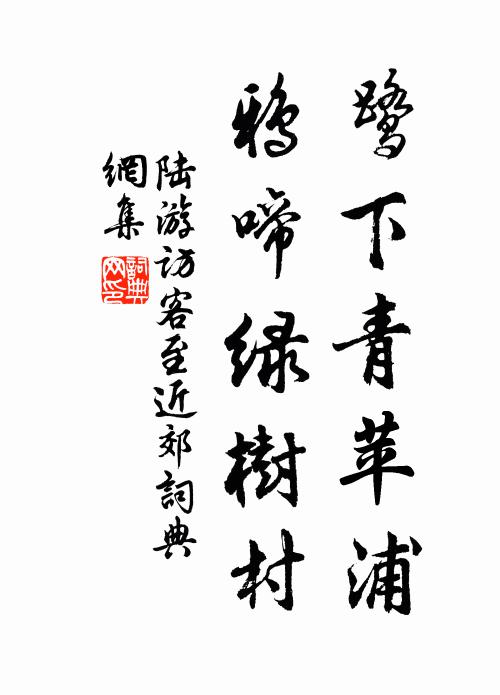 鷺下青苹浦
鴉啼緑樹村
陆游访客至近郊詞典
網集
詞典
网印